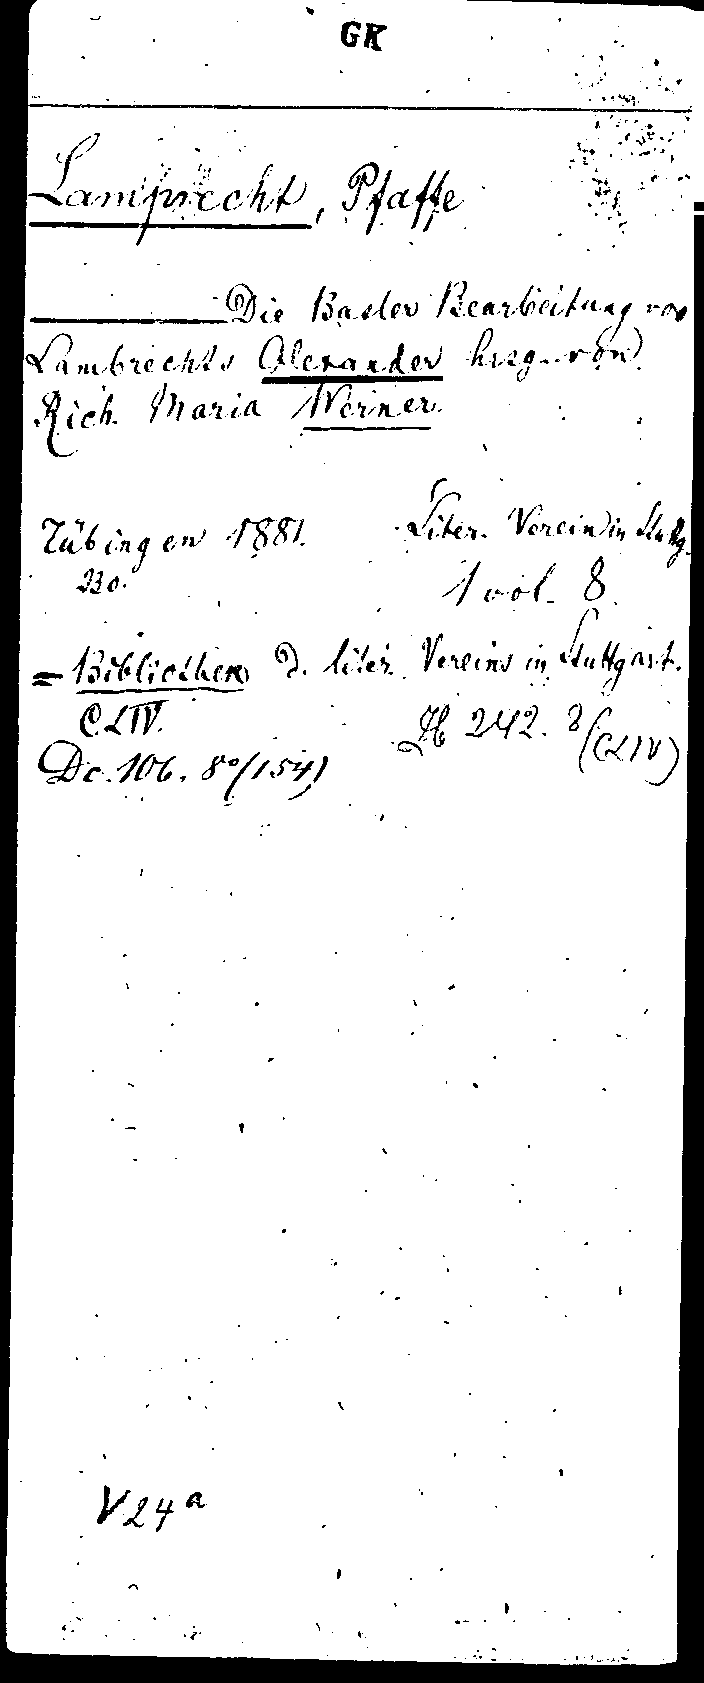 GK
Lamprecht, Pfaffe
Die Basler Bearbeitung von
Lambrechts Alexander hrsg. von
Rich. Maria Werner.
Tübingen 1881. Liter. Verein in Stuttg.
1 vol. 8.
= Bibliothek d. liter. Vereins in Stuttgart.
CLIV. 242. 8 (CLIV)
Dc. 106. 8° (154)
V24a